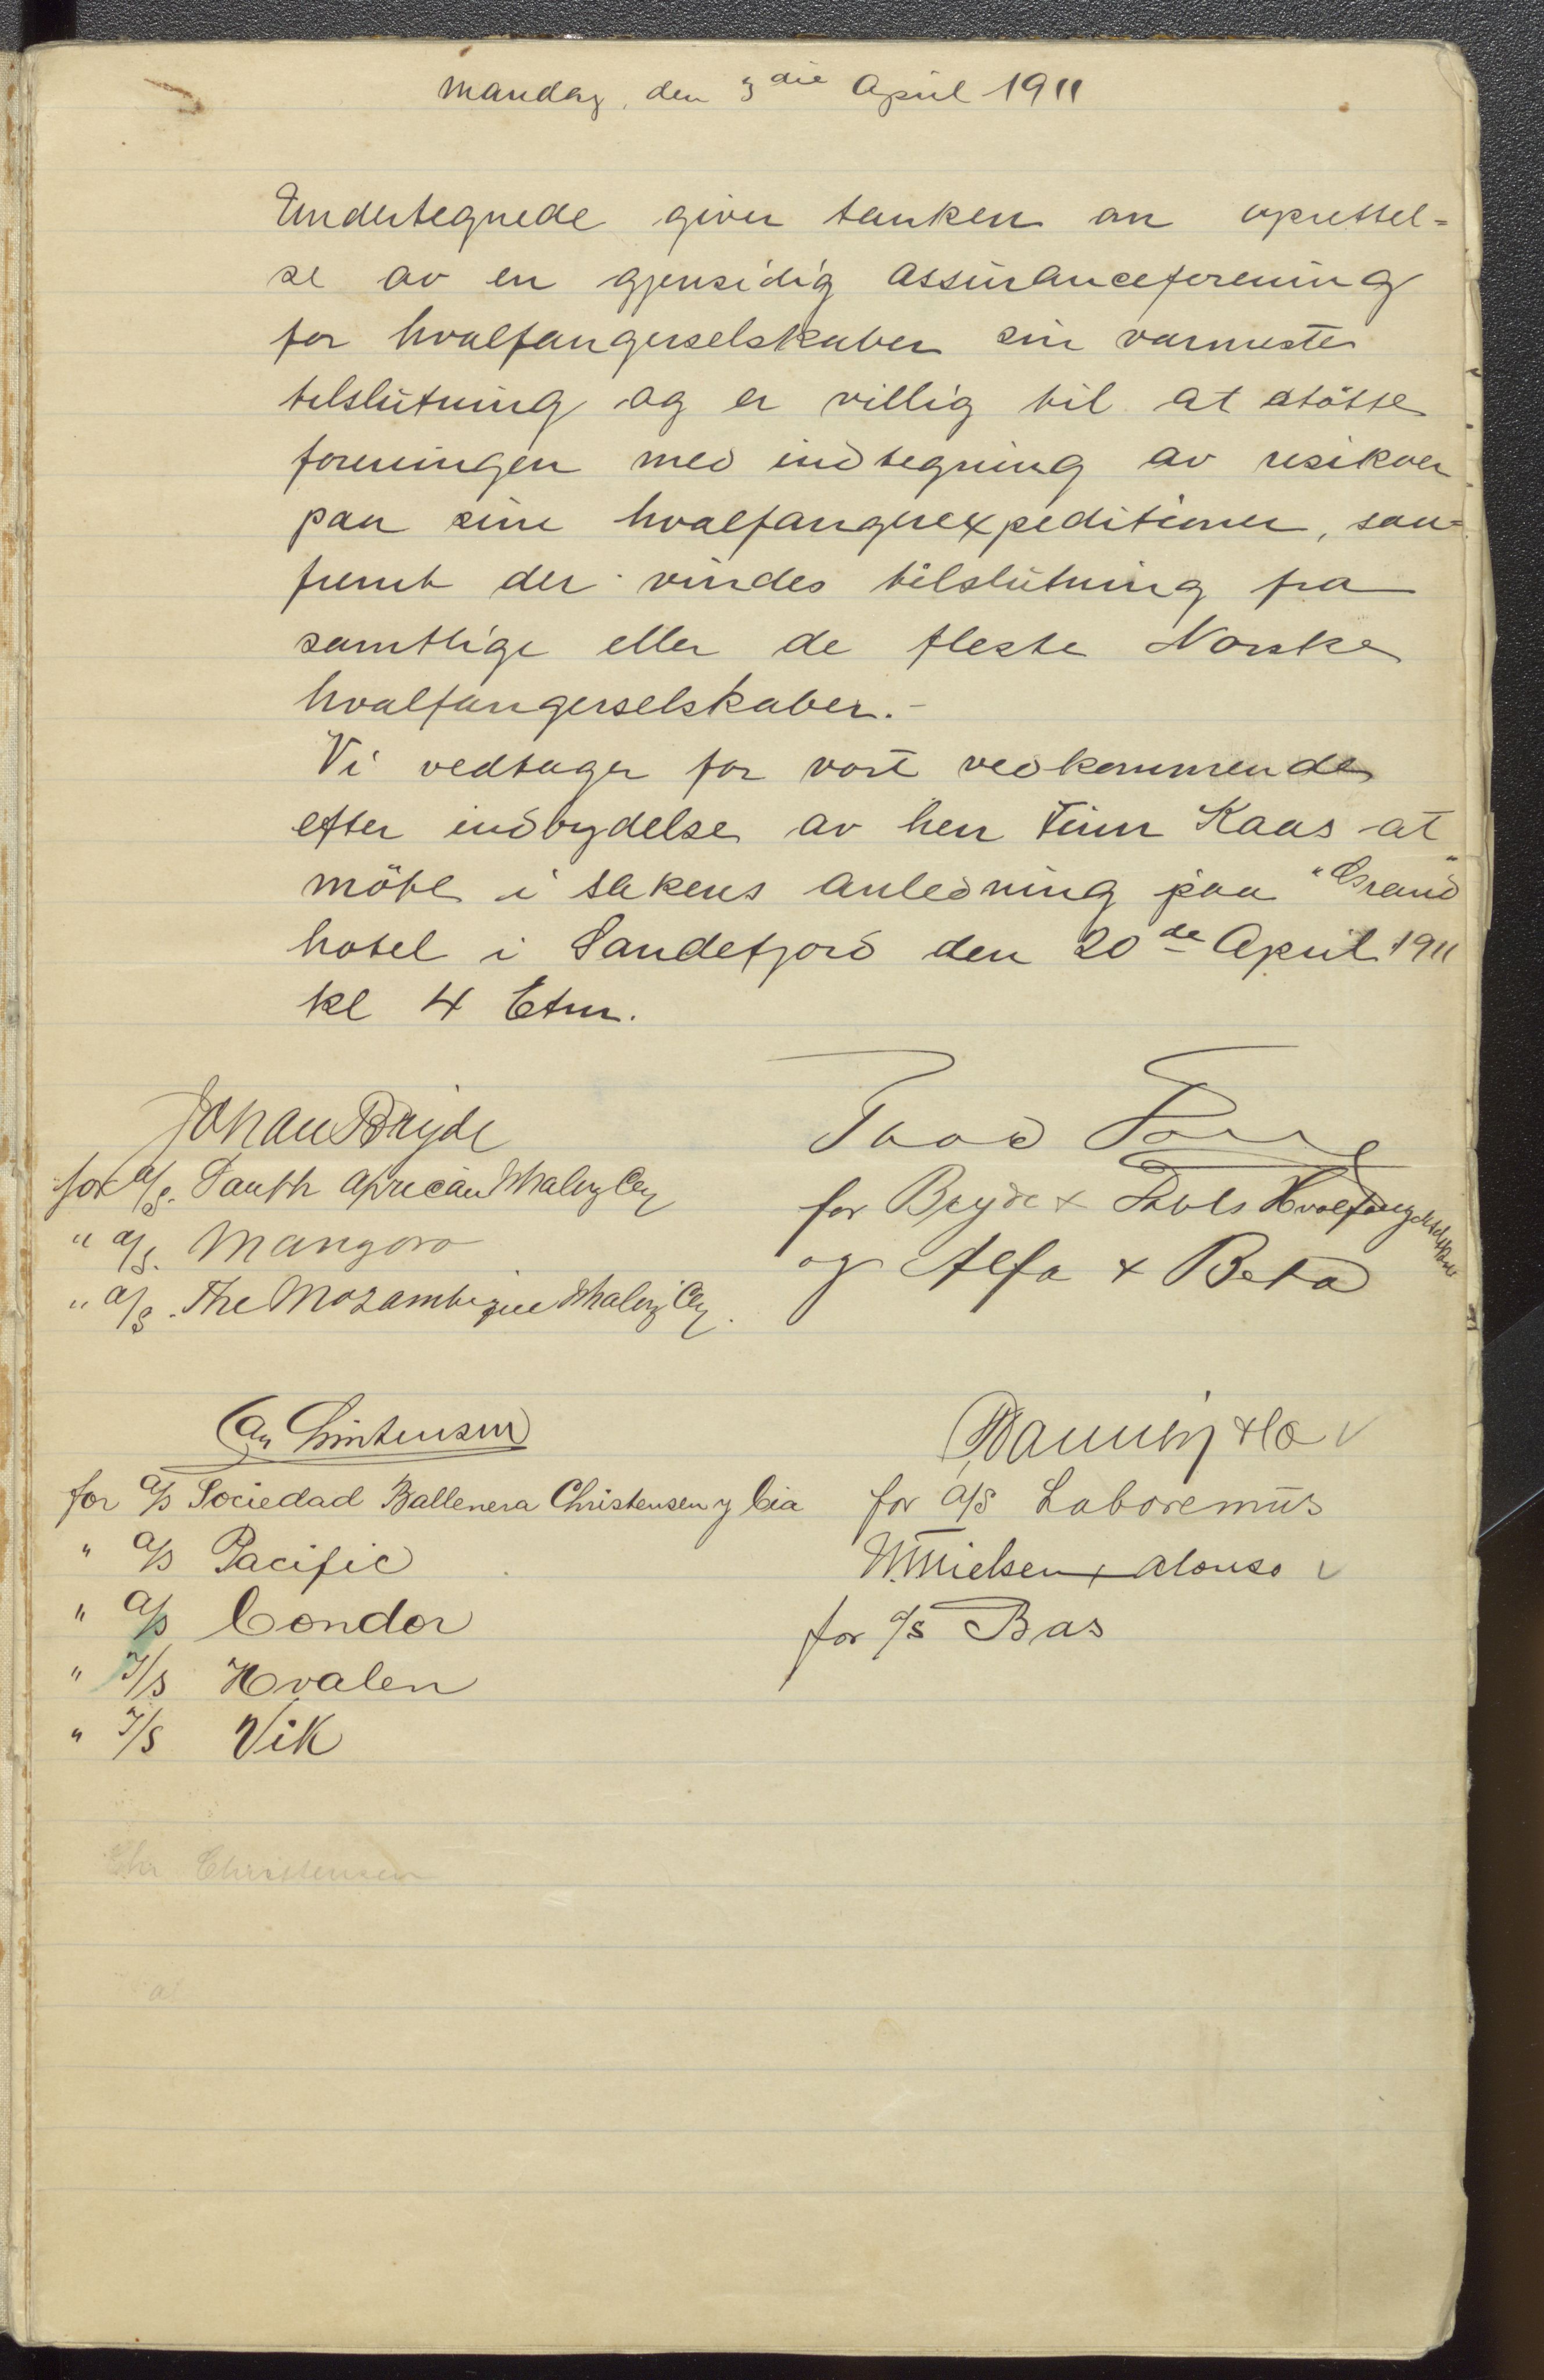 Mandag, den 3die April 1911
Undertegnede giver tanken om oprettel-
se av en gjensidig assuranceforening
for hvalfangerselskaber sin varmeste
tilslutning og er villig til at støtte
foreningen med indtegning av risikoer
paa sine hvalfangerexpeditioner, saa-
fremt der vindes tilslutning fra
samtlige eller de fleste Norske
hvalfangerselskaber.-
Vi vedtager for vort vedkommende
efter indbydelse av herr Finn Kaas at
møte i sakens anledning paa "Grand"
hotel i Sandefjord den 20de April 1911
kl 4 Etm.
Johan Bryde
for A/S. South African Whaling Coy
" A/S. Mangoro
" A/S. The Mozambique Whaling Coy.
Thor
for Bryde & Dahls Hvalfangerselskab
og Alfa & Beta
Christensen
for A/S Sociedad Ballenera Christensen y Cia
" A/S Pacific
" A/S Condor
" I/S Hvalen
" I/S Vik
& Co
for A/S Laboremus
N. Nielsen & Alonso
for A/S Bas
Chr Christensen